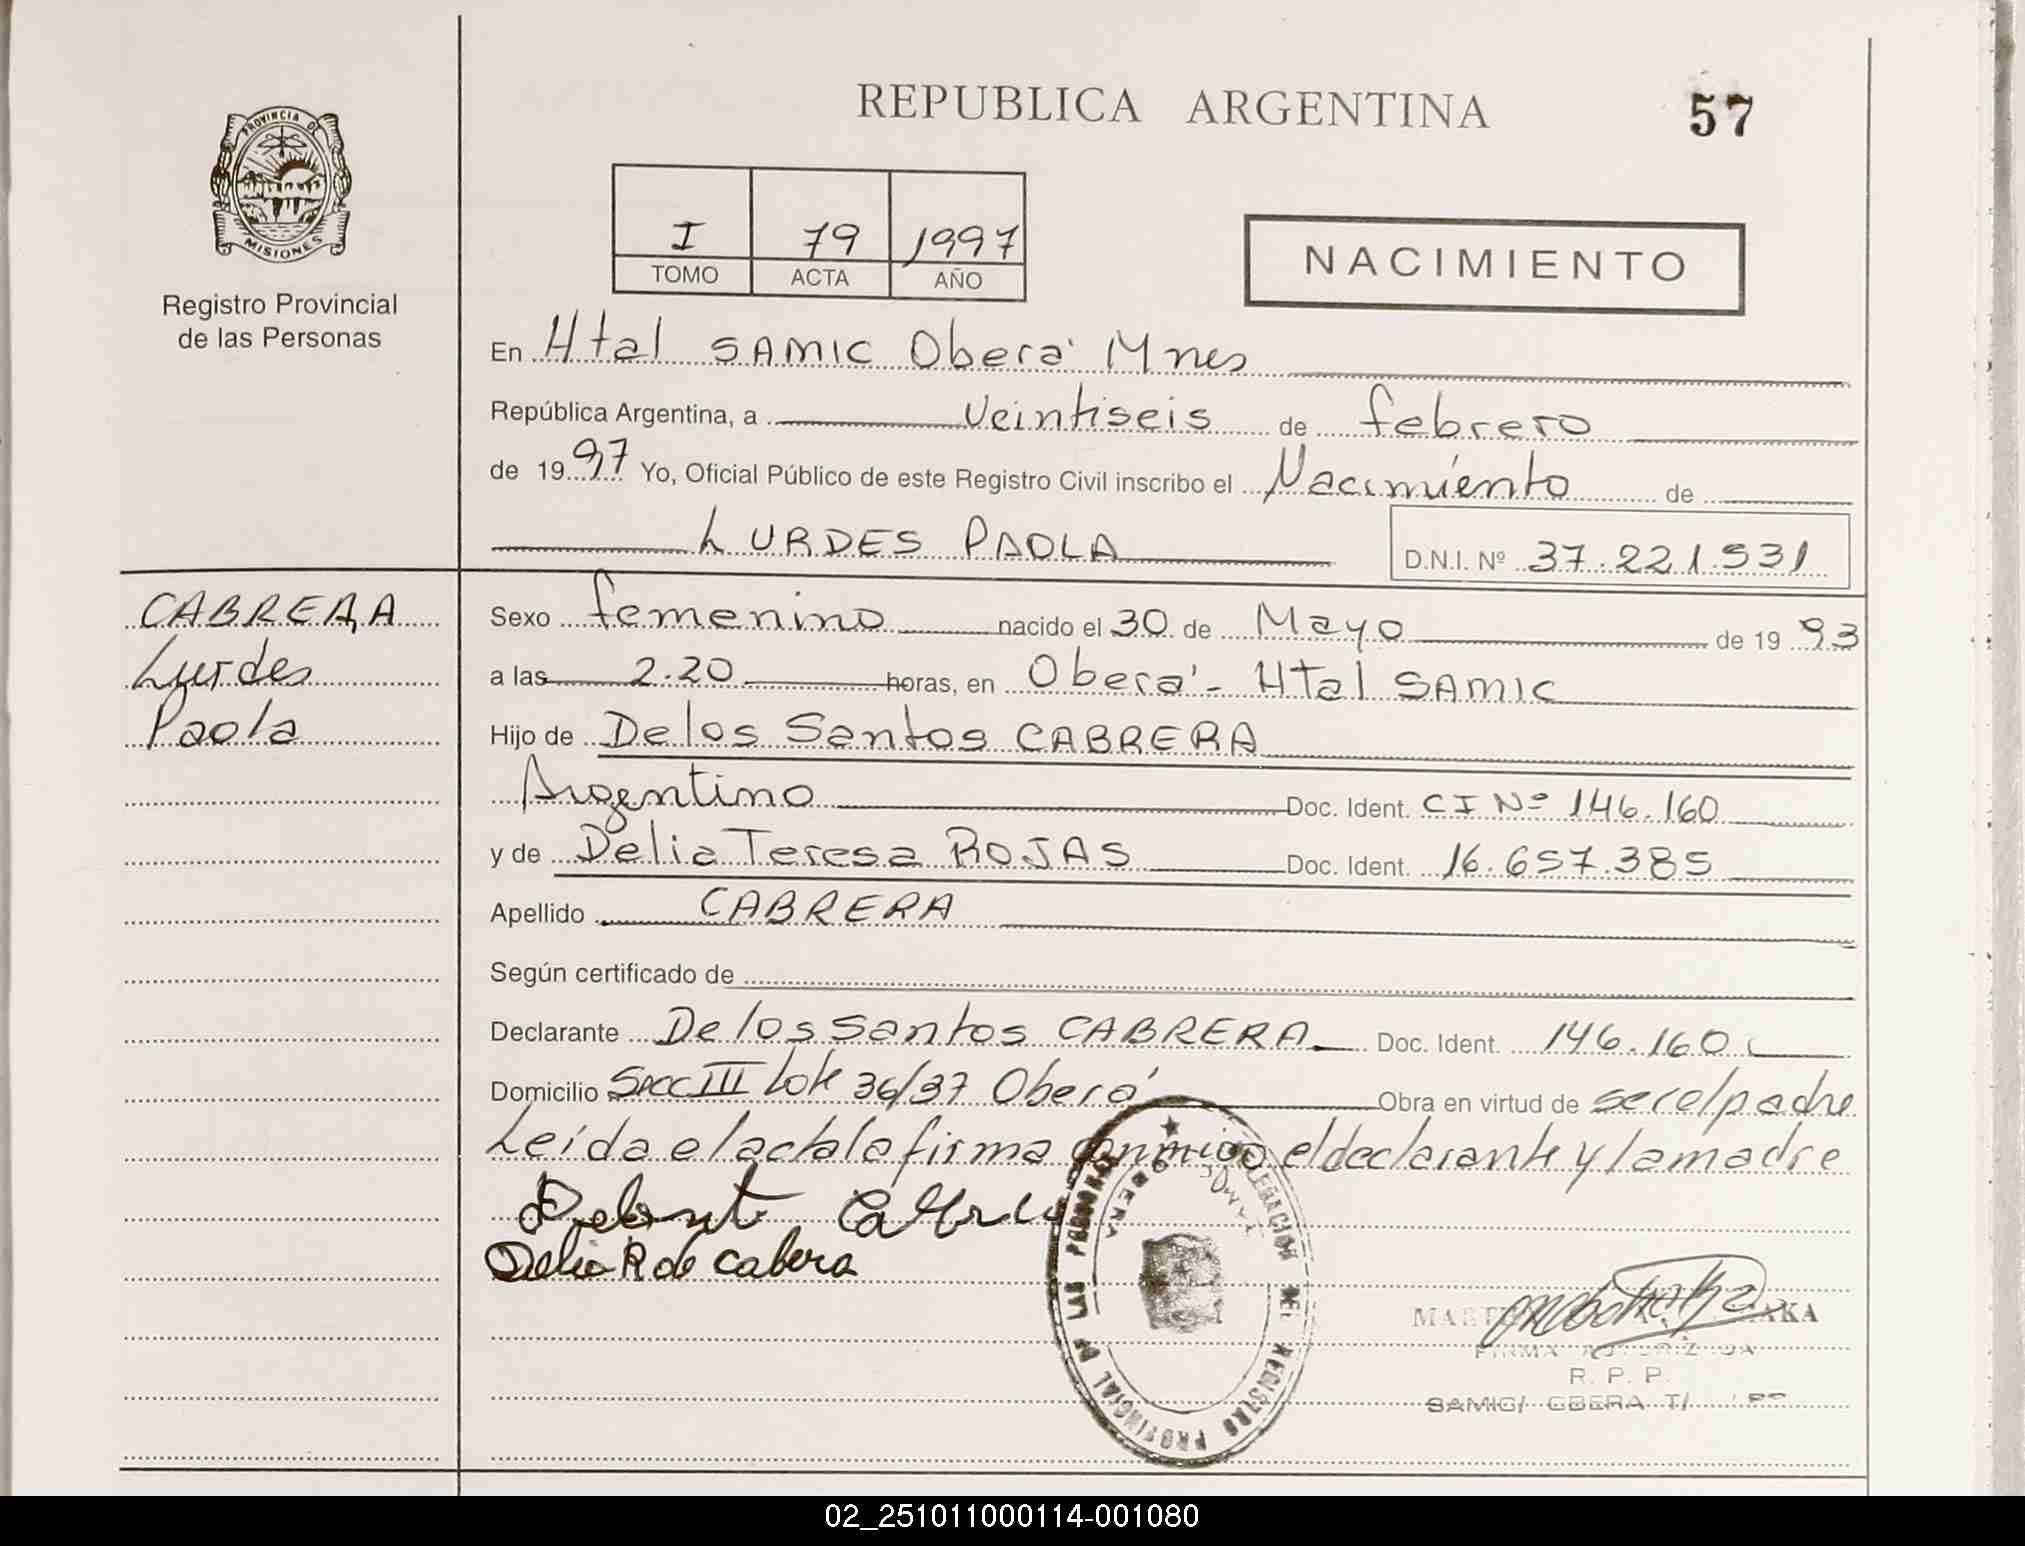 REPUBLICA ARGENTINA
57
PROVINCIA DE
MISIONES
Registro Provincial
de las Personas
I 79 1997
TOMO ACTA AÑO
NACIMIENTO
En Htal SAMIC Oberá Mnes
República Argentina, a veintiseis de febrero
de 1997 Yo, Oficial Público de este Registro Civil inscribo el Nacimiento de
LURDES PAOLA
D.N.I. Nº 37.221.531
CABRERA
Lurdes
Paola
Sexo femenino nacido el 30 de Mayo de 1993
a las 2.20 horas, en Oberá - Htal SAMIC
Hijo de De los Santos CABRERA
Argentino Doc. Ident. CI Nº 146.160
y de Delia Teresa ROJAS Doc. Ident. 16.657.385
Apellido CABRERA
Según certificado de
Declarante De los Santos CABRERA Doc. Ident. 146.160
Domicilio Secc III Lote 36/37 Oberá Obra en virtud de ser el padre
Leída el acta la firma conmigo el declarante y la madre
Delia R de Cabera
DELEGACION DEL REGISTRO PROVINCIAL DE LAS PERSONAS
FIRMA AUTORIZADA
R. P. P.
SAMIC/ OBERA
02_251011000114-001080